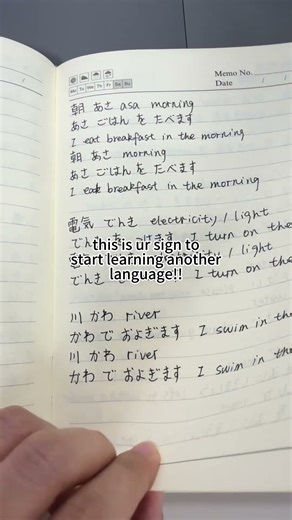 Memo No.
Mo Tu We Th Fr Sa Su
Date / /
朝 あさ asa morning
あさ ごはん を たべます
I eat breakfast in the morning
朝 あさ morning
あさ ごはん を たべます
I eat breakfast in the morning
電気 でんき electricity / light
でんき つけます I turn on the
this is ur sign to
start learning another
language!!
light
でんき I turn on the
川 かわ river
かわ で およぎます I swim in the
川 かわ river
かわ で およぎます I swim in the